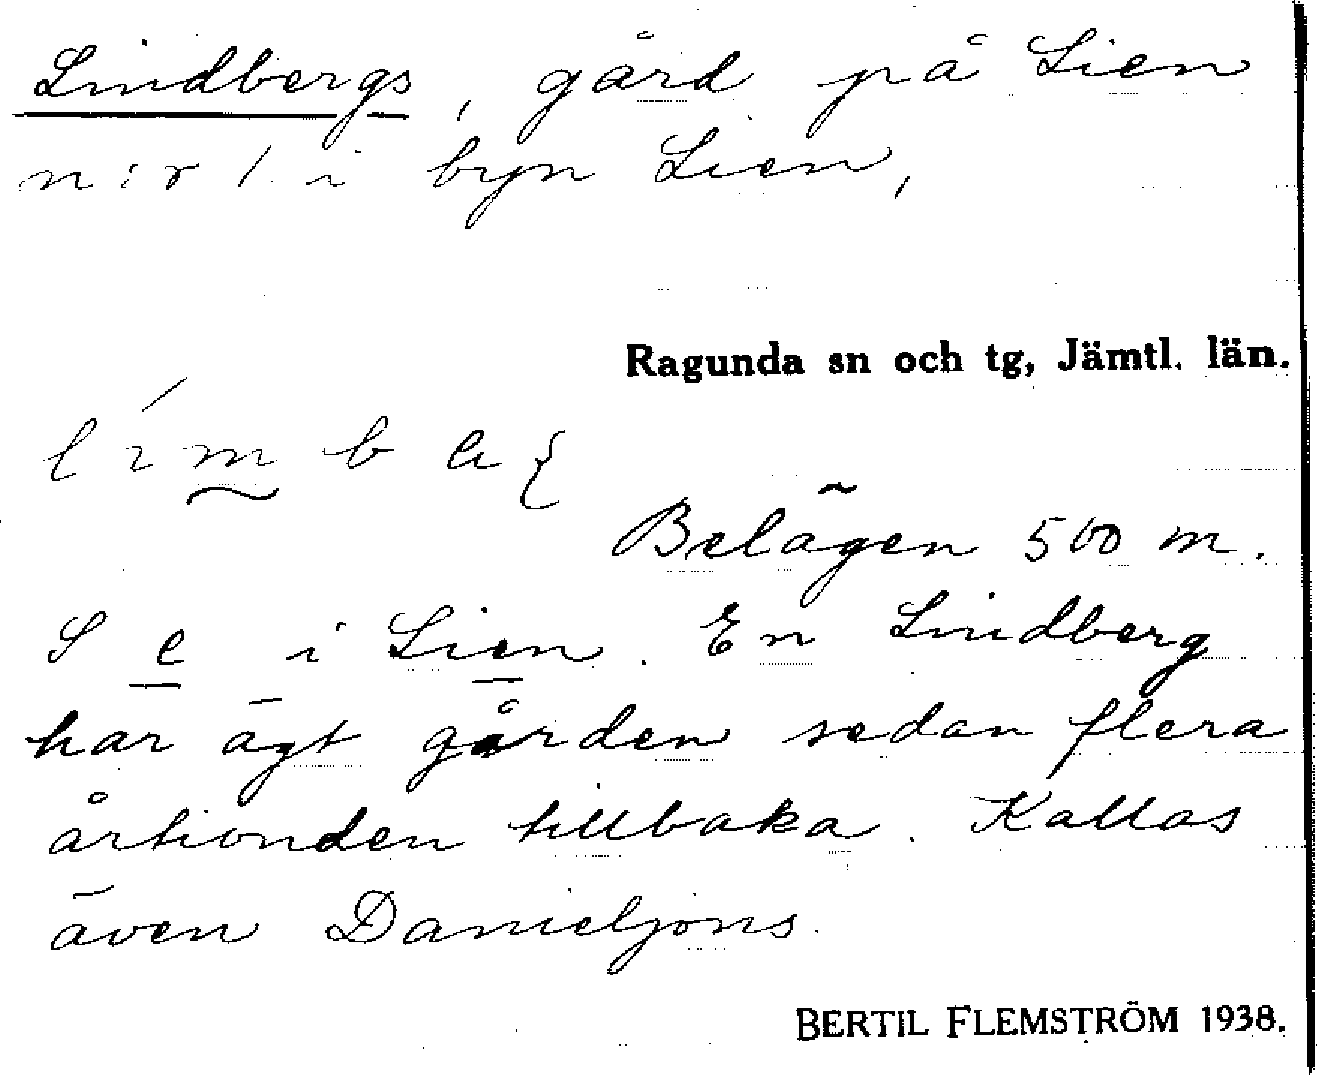 Lindbergs, gård på Lien
n:r 1 i byn Lien,
Ragunda sn och tg, Jämtl. län.
Belägen 500 m.
S e i Lien. En Lindberg
har ägt gården sedan flera
årtionden tillbaka. Kallas
även Danieljöns.
BERTIL FLEMSTRÖM 1938.